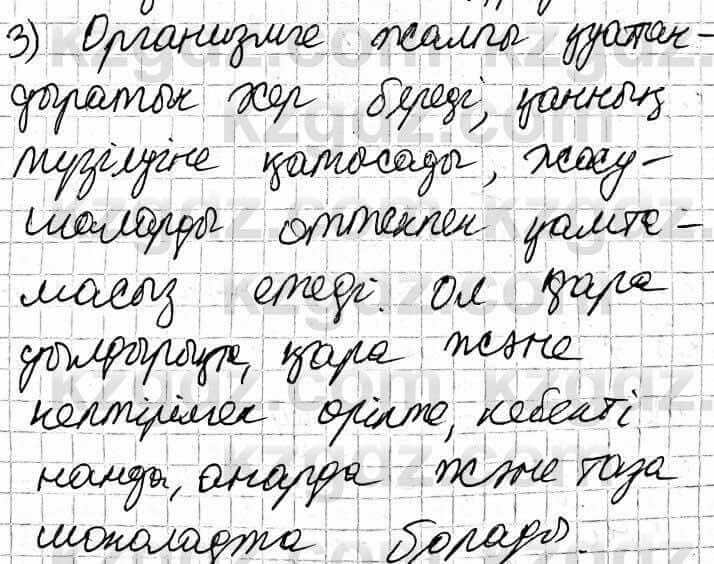 3) Организмге жалпы қуатан-
дыратын жер береді, қанның
түзілуіне қатысады, жасу-
шаларды оттекпен қамта-
масыз етеді. Ол қара
қылдырықта, қара және
кептірілген өрікте, кебекті
нанда, анарда және таза
шоколадта болады.